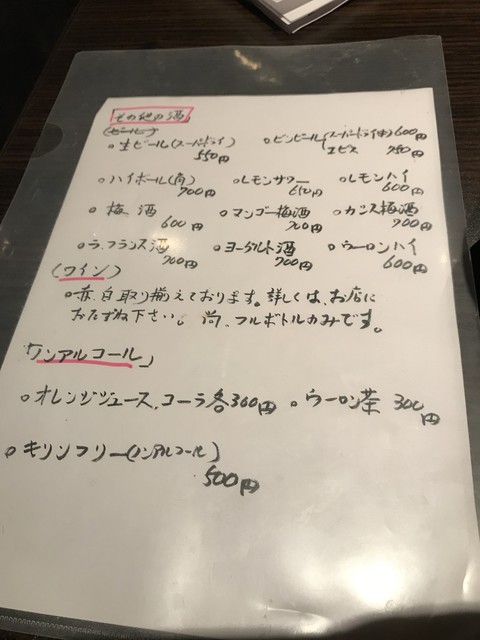 その他の酒
(ビール)
○生ビール(スーパードライ) ○ビンビール(スーパードライ(中)600円
550円 エビス 750円
○ハイボール(角) ○レモンサワー ○レモンハイ
700円 650円 600円
○梅酒 ○マンゴー梅酒 ○カシス梅酒
600円 700円 700円
○ラ.フランス酒 ○ヨーグルト酒 ○ウーロンハイ
700円 700円 600円
(ワイン)
○赤、白取り揃えております。詳しくは、お店に
おたずね下さい。尚、フルボトルのみです。
「ノンアルコール」
○オレンジジュース、コーラ各300円 ○ウーロン茶 300円
○キリンフリー(ノンアルコール)
500円